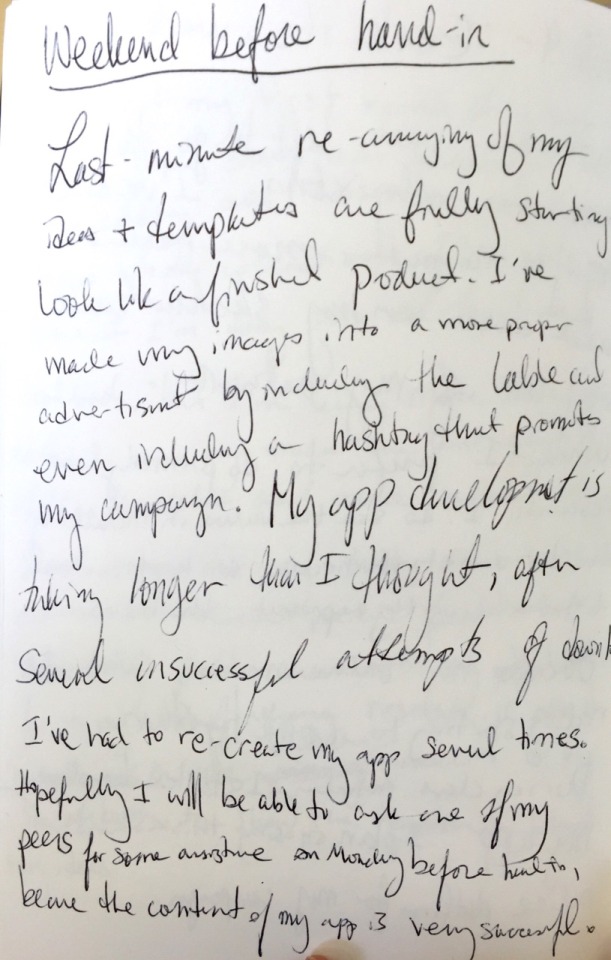 Weekend before hand-in
Last-minute re-arranging of my
ideas + templates are finally starting
look like a finished product. I've
made my images into a more proper
advertisment by including the lable and
even including a hashtag that promotes
my campaign. My app development is
taking longer than I thought, after
Several unsuccessful attempts of
I've had to re-create my app several times.
Hopefully I will be able to ask one of my
peers for some assistance on Monday before hand in,
because the content of my app is very successful.